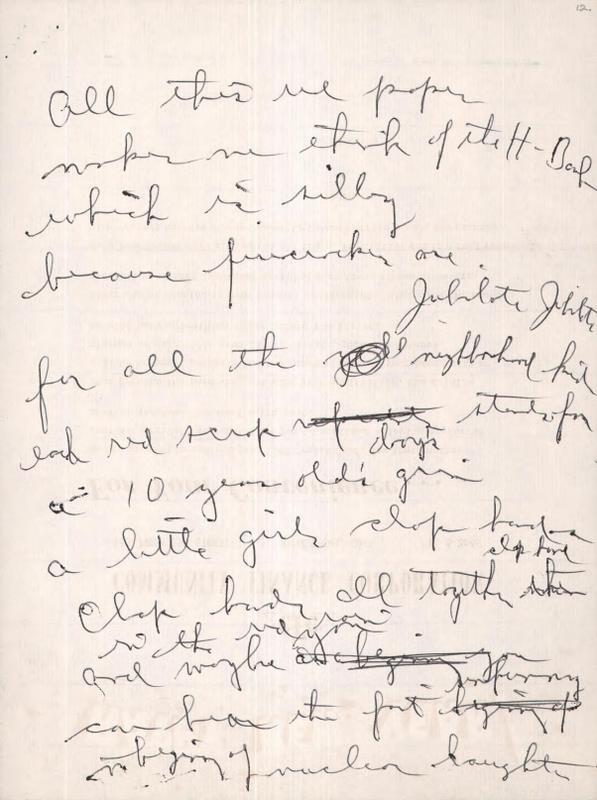 12.
All this red paper
makes me think of the H-Bomb
which is silly
because firecrackers are.
Jubilate Jubilate
for all the neighborhood kids
each red scrap stands for
a 10 year old boy's grin
a little girls clap hands
clap hands
Clap hands all together
in the red rain
and maybe you
can hear the first
unfunny
beginning of nuclear laughter